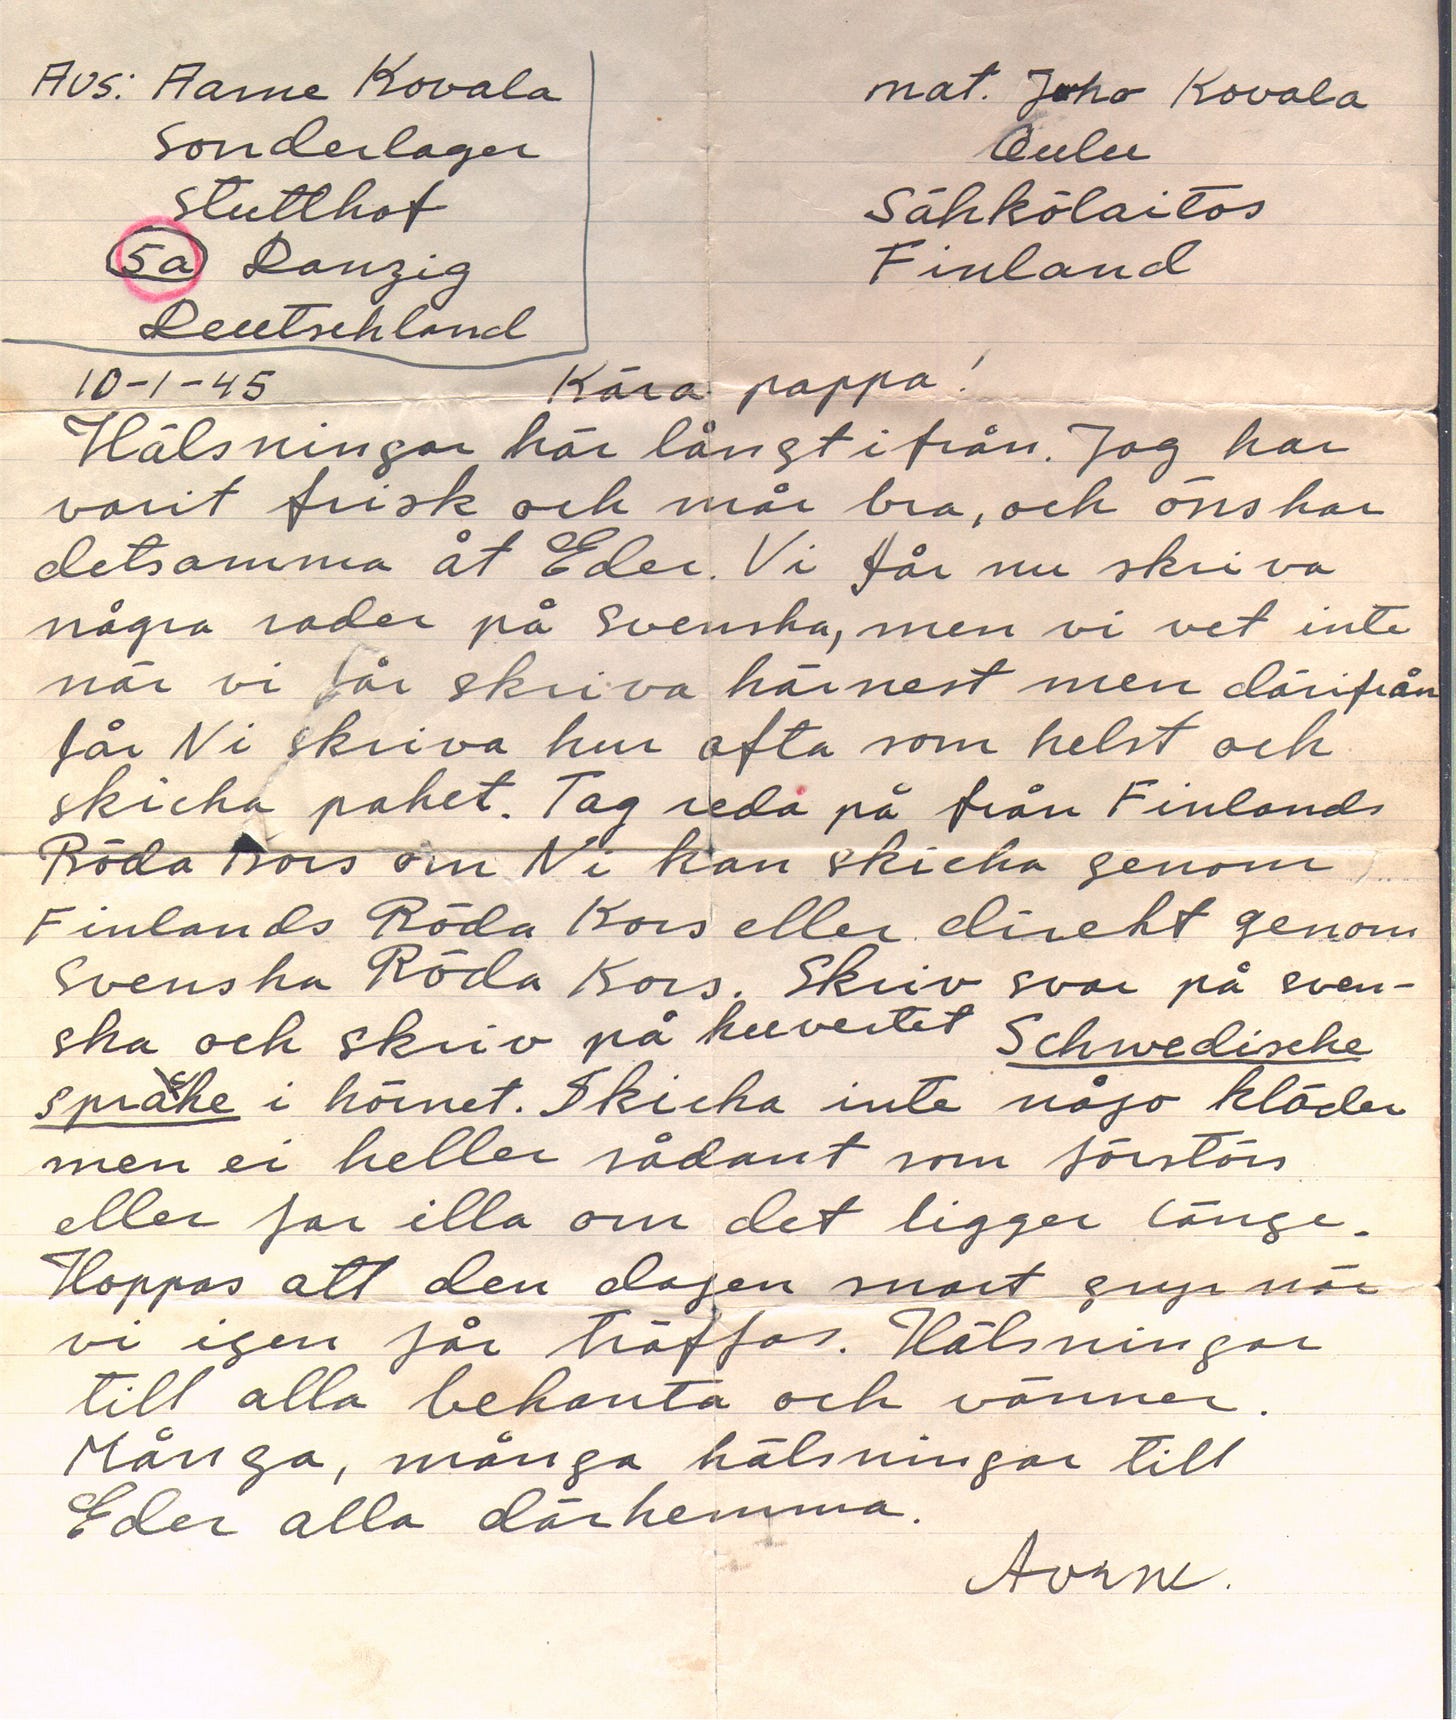 Avs: Aarne Kovala
Sonderlager
Stutthof
5a Danzig
Deutschland
mat. Juho Kovala
Oulu
Sähkölaitos
Finland
10-1-45 Kära pappa!
Hälsningar här långt ifrån. Jag har
varit frisk och mår bra, och önskar
detsamma åt Eder. Vi får nu skriva
några rader på svenska, men vi vet inte
när vi får skriva härnest men därifrån
får Ni skriva hur ofta som helst och
skicka paket. Tag reda på från Finlands
Röda Kors om Ni kan skicka genom
Finlands Röda Kors eller direkt genom
Svenska Röda Kors. Skriv svar på sven-
ska och skriv på kuvertet Schwedische
sprache i hörnet. Skicka inte någo kläder
men ei heller sådant som förstörs
eller far illa om det ligger länge.
Hoppas att den dagen snart gryr när
vi igen får träffas. Hälsningar
till alla bekanta och vänner.
Många, många hälsningar till
Eder alla därhemma.
Aarne.